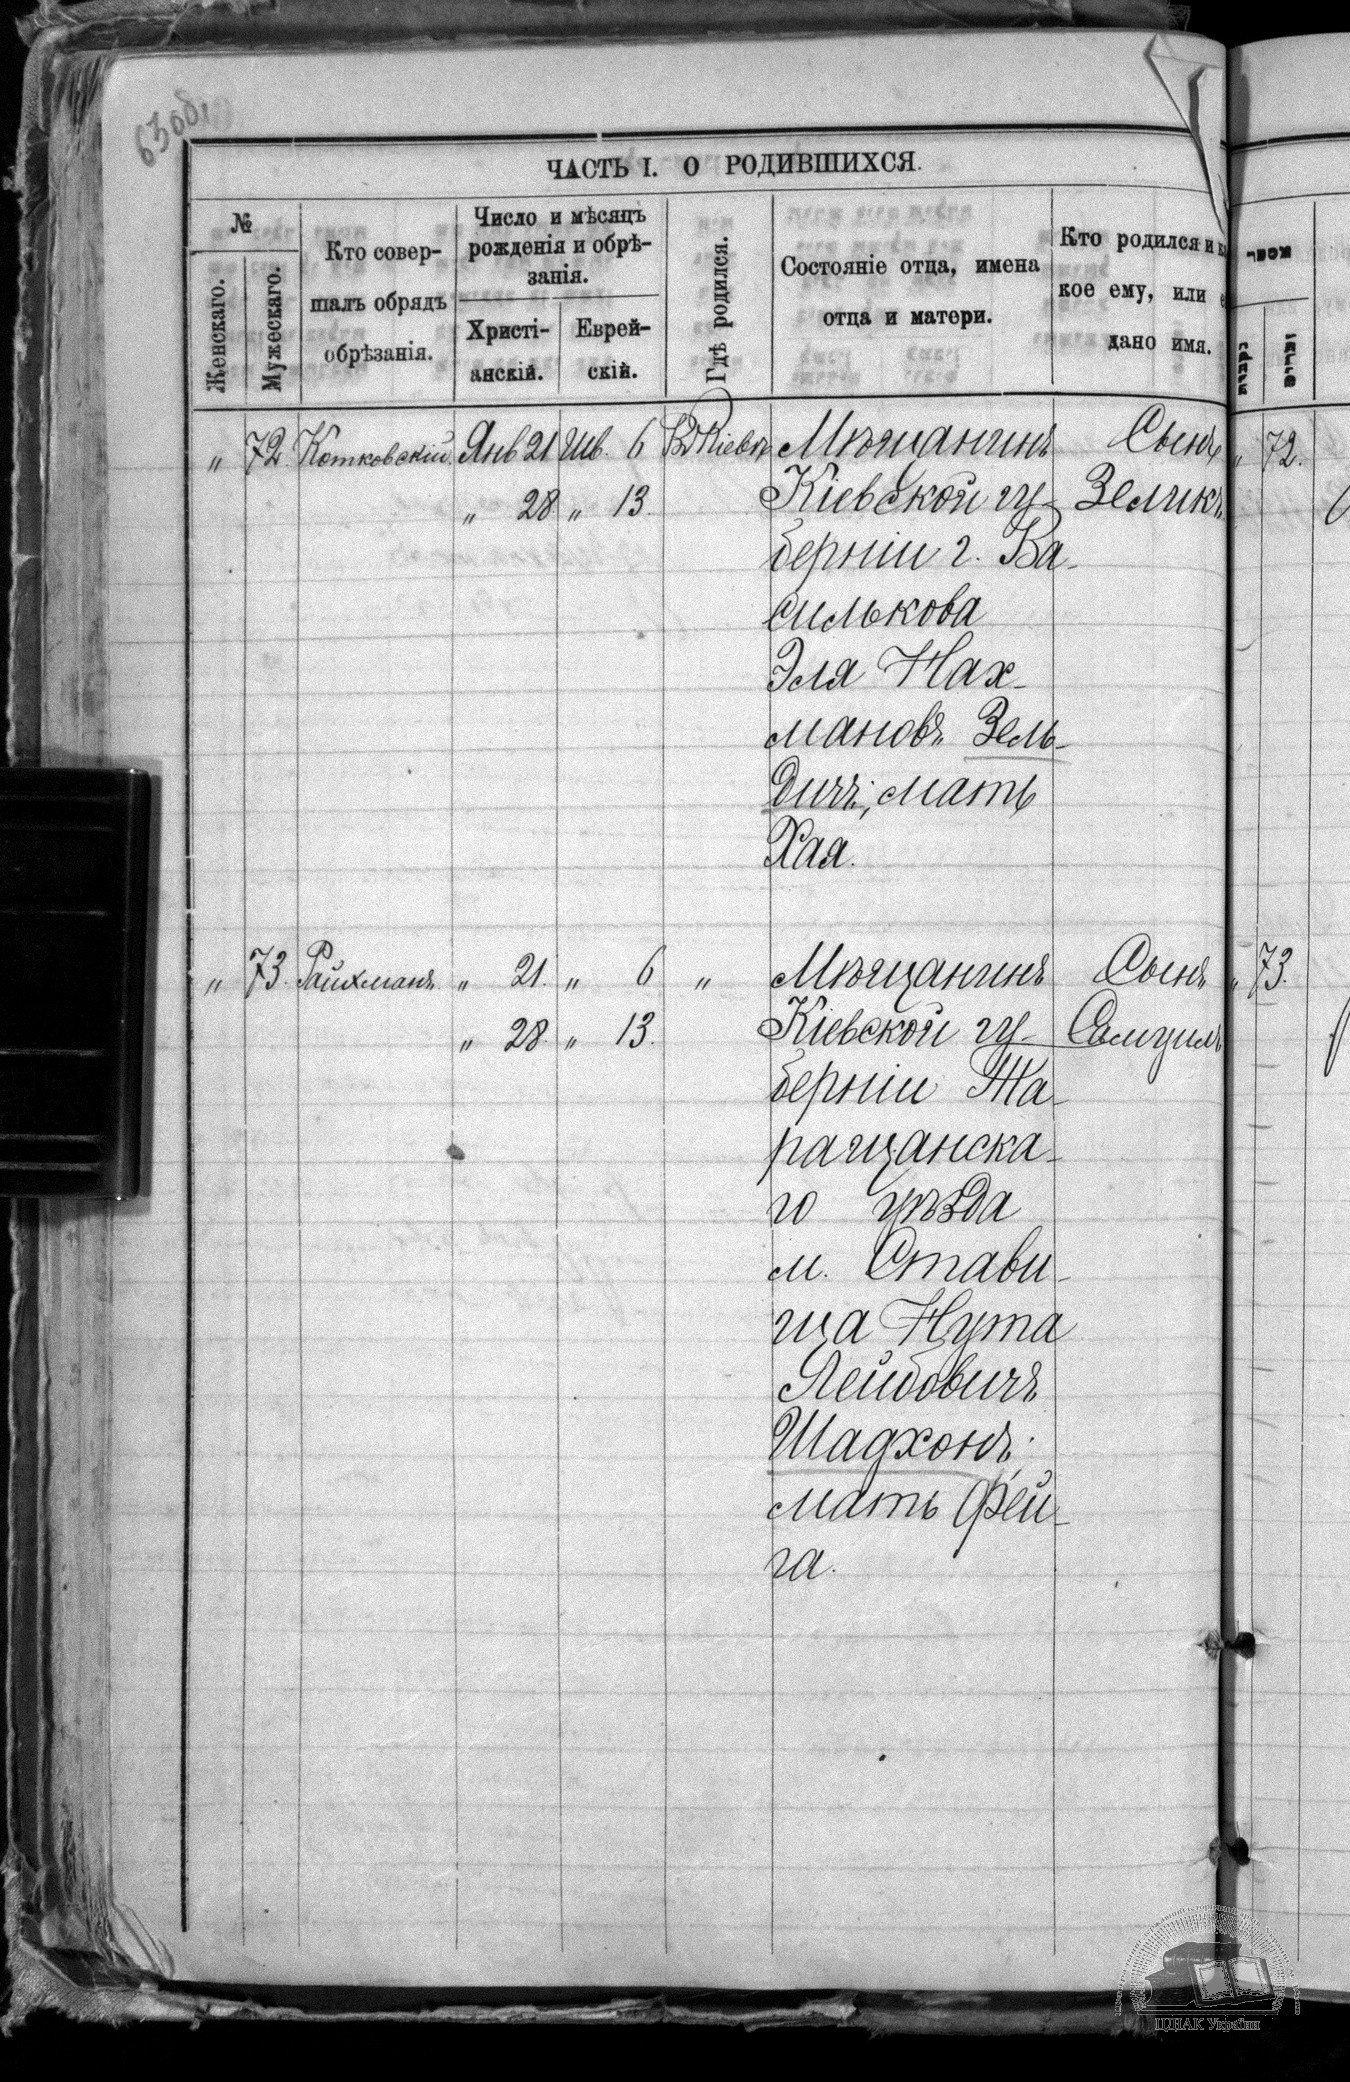 63 об.
ЧАСТЬ I. О РОДИВШИХСЯ.
№
Женскаго.
Мужескаго.
Кто совер-
шалъ обрядъ
обрѣзанія.
Число и мѣсяцъ
рожденія и обрѣ-
занія.
Христі-
анскій.
Еврей-
скій.
Гдѣ родился.
Состояніе отца, имена
отца и матери.
Кто родился и ка
кое ему, или е
дано имя.
" 72. Котковскій Янв 21 Шв. 6 Въ Кіевѣ Мѣщанинъ Сынъ
" 28 " 13. Кіевской гу- Зеликъ
берніи г. Ва-
силькова
Эля Нах-
мановъ Зель-
дичъ; мать
Хая.
" 73. Райхманъ " 21. " 6 " Мѣщанинъ Сынъ
" 28. " 13. Кіевской гу- Самуилъ
берніи Та-
ращанска-
го уѣзда
м. Стави-
ща Нута
Лейбовичъ
Шадхонъ;
мать Фей-
га.
נקבות
זכרים
" 72.
" 73.
ЦДІАК України